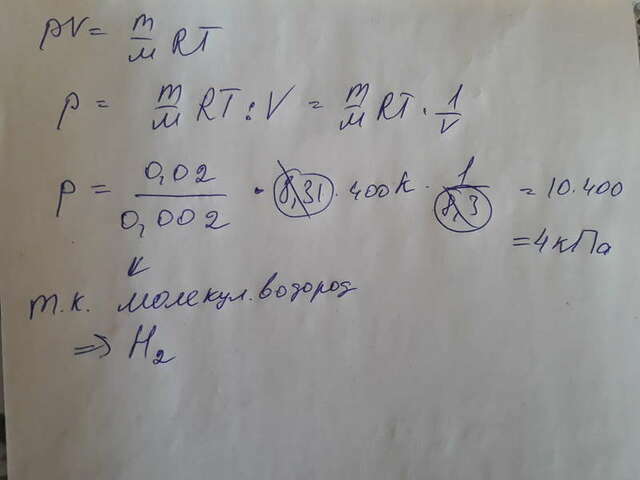 pV = m/M RT
p = m/M RT : V = m/M RT · 1/V
p = 0,02/0,002 · 8,31 · 400K · 1/8,3 = 10·400
= 4кПа
т.к. молекул. водород
⇒ H₂